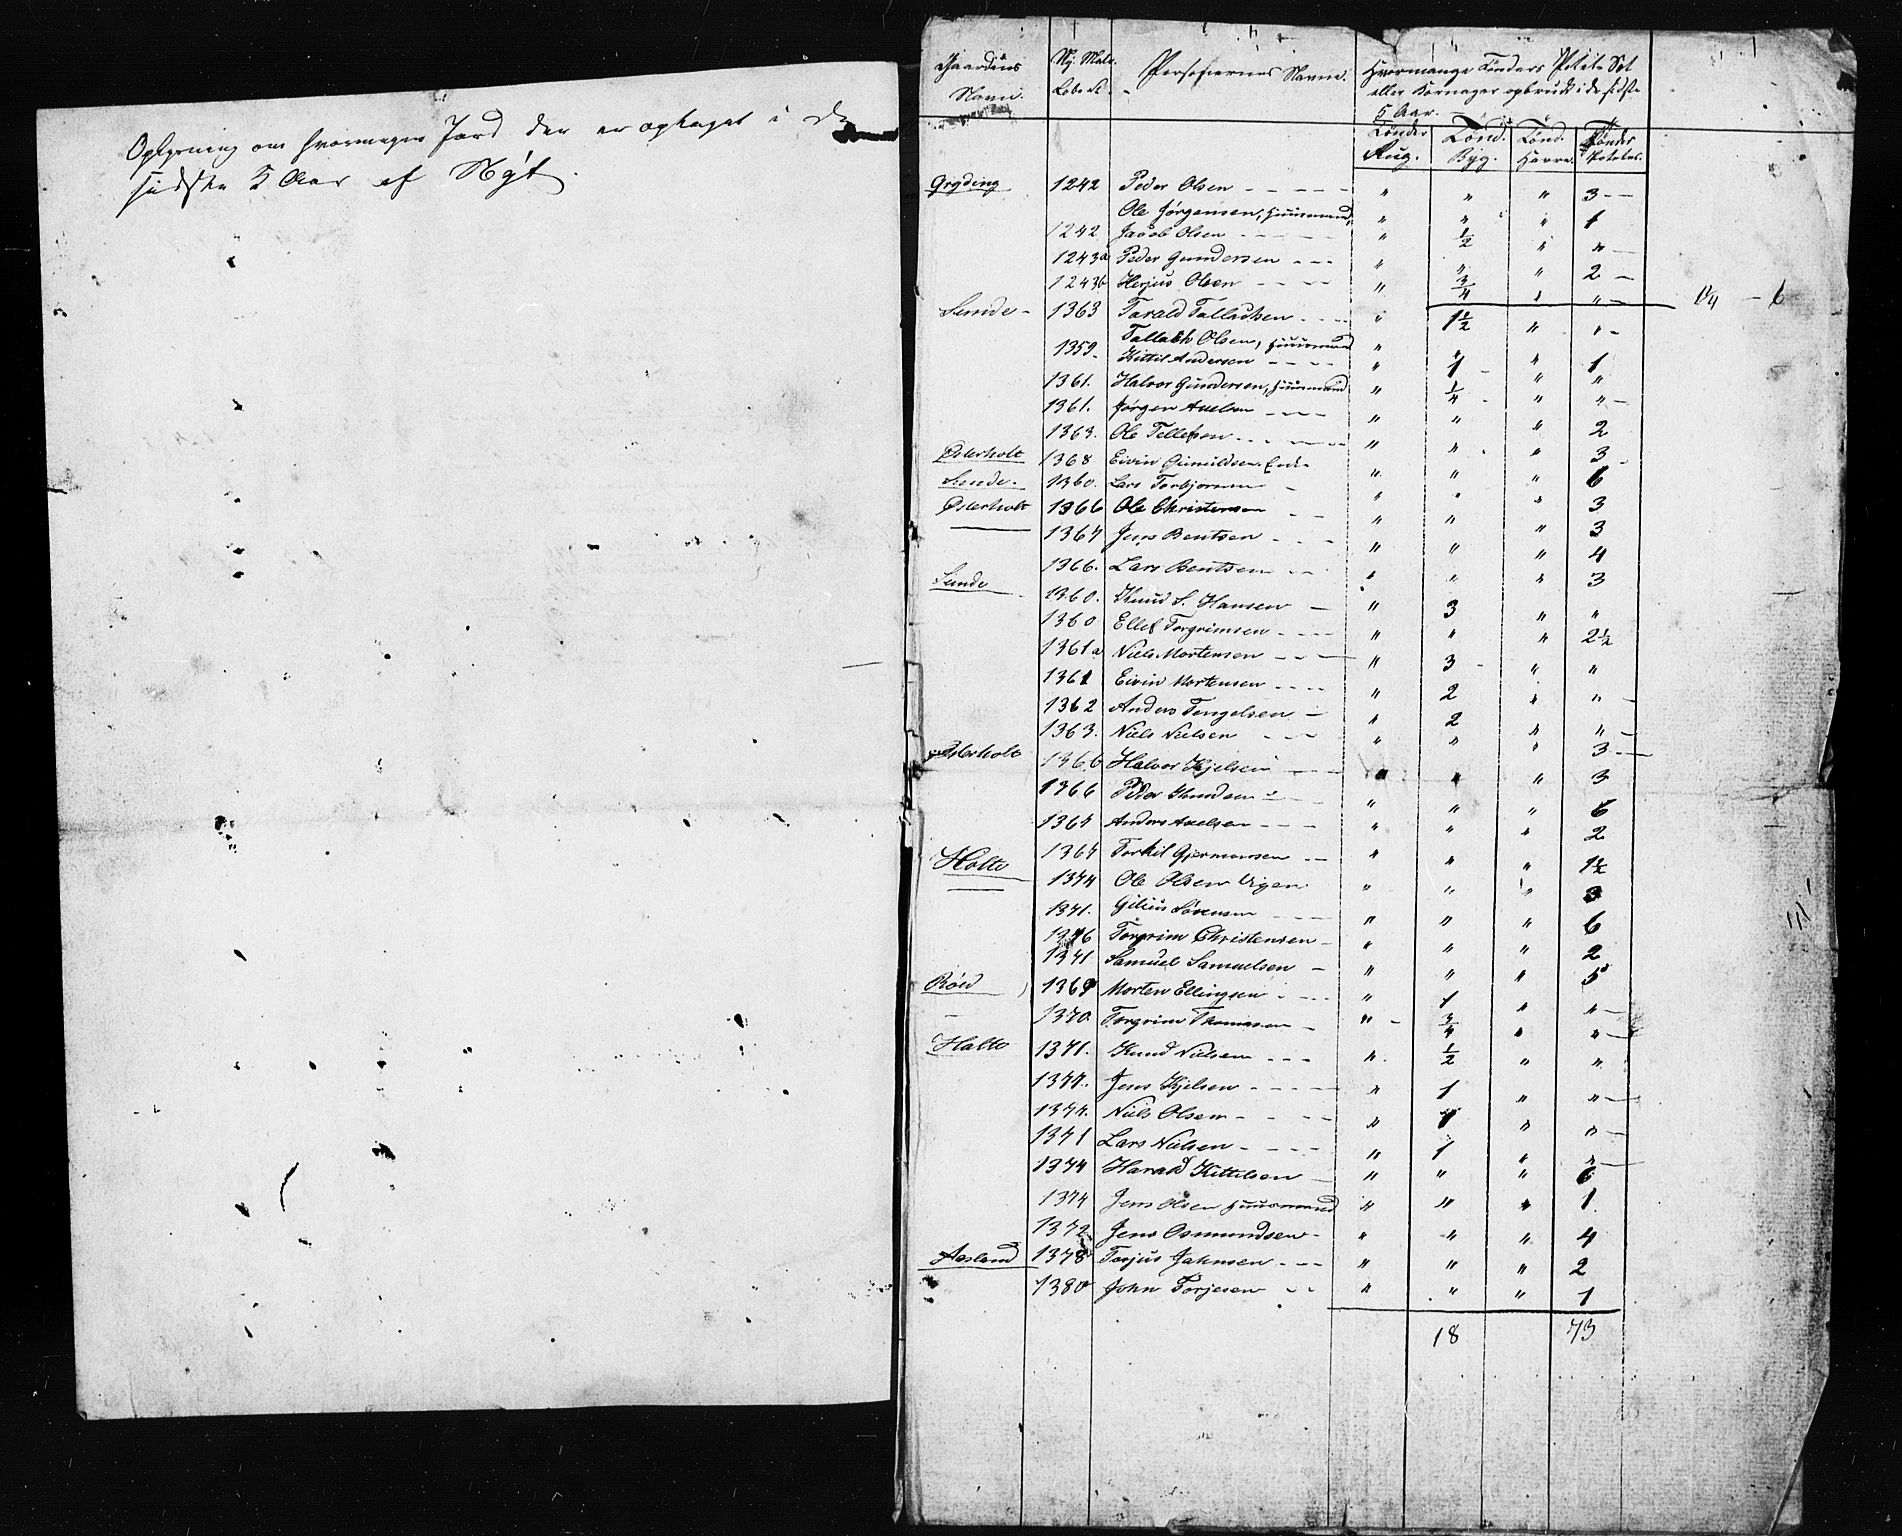 Oplysning om hvormegen Jord der er optaget i de
sidste 5 Aar af Nyt.
Gaardens Navn. | Ny Matr. Løbe № | Personernes Navne. | Hvormange Tønders Potete Set
eller Kornager opbrudt i de sidste
5 Aar.
Tønder Rug. | Tønd. Byg. | Tønd. Havre. | Tønder Poteter.
Gryding 1242 Peder Olsen - - - - - " " " 3 -
Ole Jørgensen, Huusmand, " " " 1
1242 Jacob Olsen - - - - - " 1/2 " " -
1243a Peder Gundersen - - - " " " 2 -
1243b Herjus Olsen - - - - " 3/4 " " - 1 1/4 - 6
Sunde - 1363 Tarald Tallachsen - - - - " 1 1/2 " " -
Tallach Olsen, Huusmand " " " 1
1359. Kittil Andersen - - - - " 1 - " "
1361. Halvor Gundersen, Huusmand " 1/4 - " " -
1361. Jørgen Axelsen - - - - " " " 2
1363. Ole Tellefsen - - - - - " " " 3 -
Østerholt 1368 Eivin Gunuldsen Enke " " " 6
Sunde. 1360. Lars Torbjørnsen - " " " 3
Østerholt 1366 Ole Christensen - - " " " 3
1367 Jens Bentsen - - - " " " 4
1366. Lars Bentsen - - " " " 3
Sunde 1360. Knud S. Hansen - " 3 " "
1360 Ellef Torgrimsen - - - - " " " 2 1/2
1361a Niels Mortensen - - - " 3 - " "
1361 Eivin Mortensen - - - - " 2 " " -
1362 Anders Tengelsen - " 2 " " -
1363. Niels Nielsen - - - " " " 3 -
Østerholt 1366 Halvor Kjelsen - - - " " " 3
1366 Peder Knudsen - - - " " " 6
1367 Anders Axelsen - - - " " " 2
1367 Torkil Gjermonsen - - " " " 1 1/2
Holte 1374 Ole Olsen Vigen " " " 3
1371. Gilius Sørensen - - - " " " 6
1376 Torgrim Christensen - " " " 2
1371 Samuel Samuelsen - " " " 5
Røed 1369 Morten Ellingsen - - - - " 1 " " -
1370. Torgrim Thomassen - " - 3/4 " " -
Holte 1371. Knud Nielsen - - - " 1/2 " "
1377. Jens Kjelsen - - - - - " 1 " " -
1374. Niels Olsen - - - - " 1 " " -
1371 Lars Nielsen - - - - " 1 " " -
1374 Harald Kittelsen - " " " 6
1374 Jens Olsen Huusmand " " " 1
1372 Jens Osmundsen - " " " 4
Aasland 1378 Torjus Jahnsen - - - " " " 2
1380 John Torjesen - - " " " 1
18 73